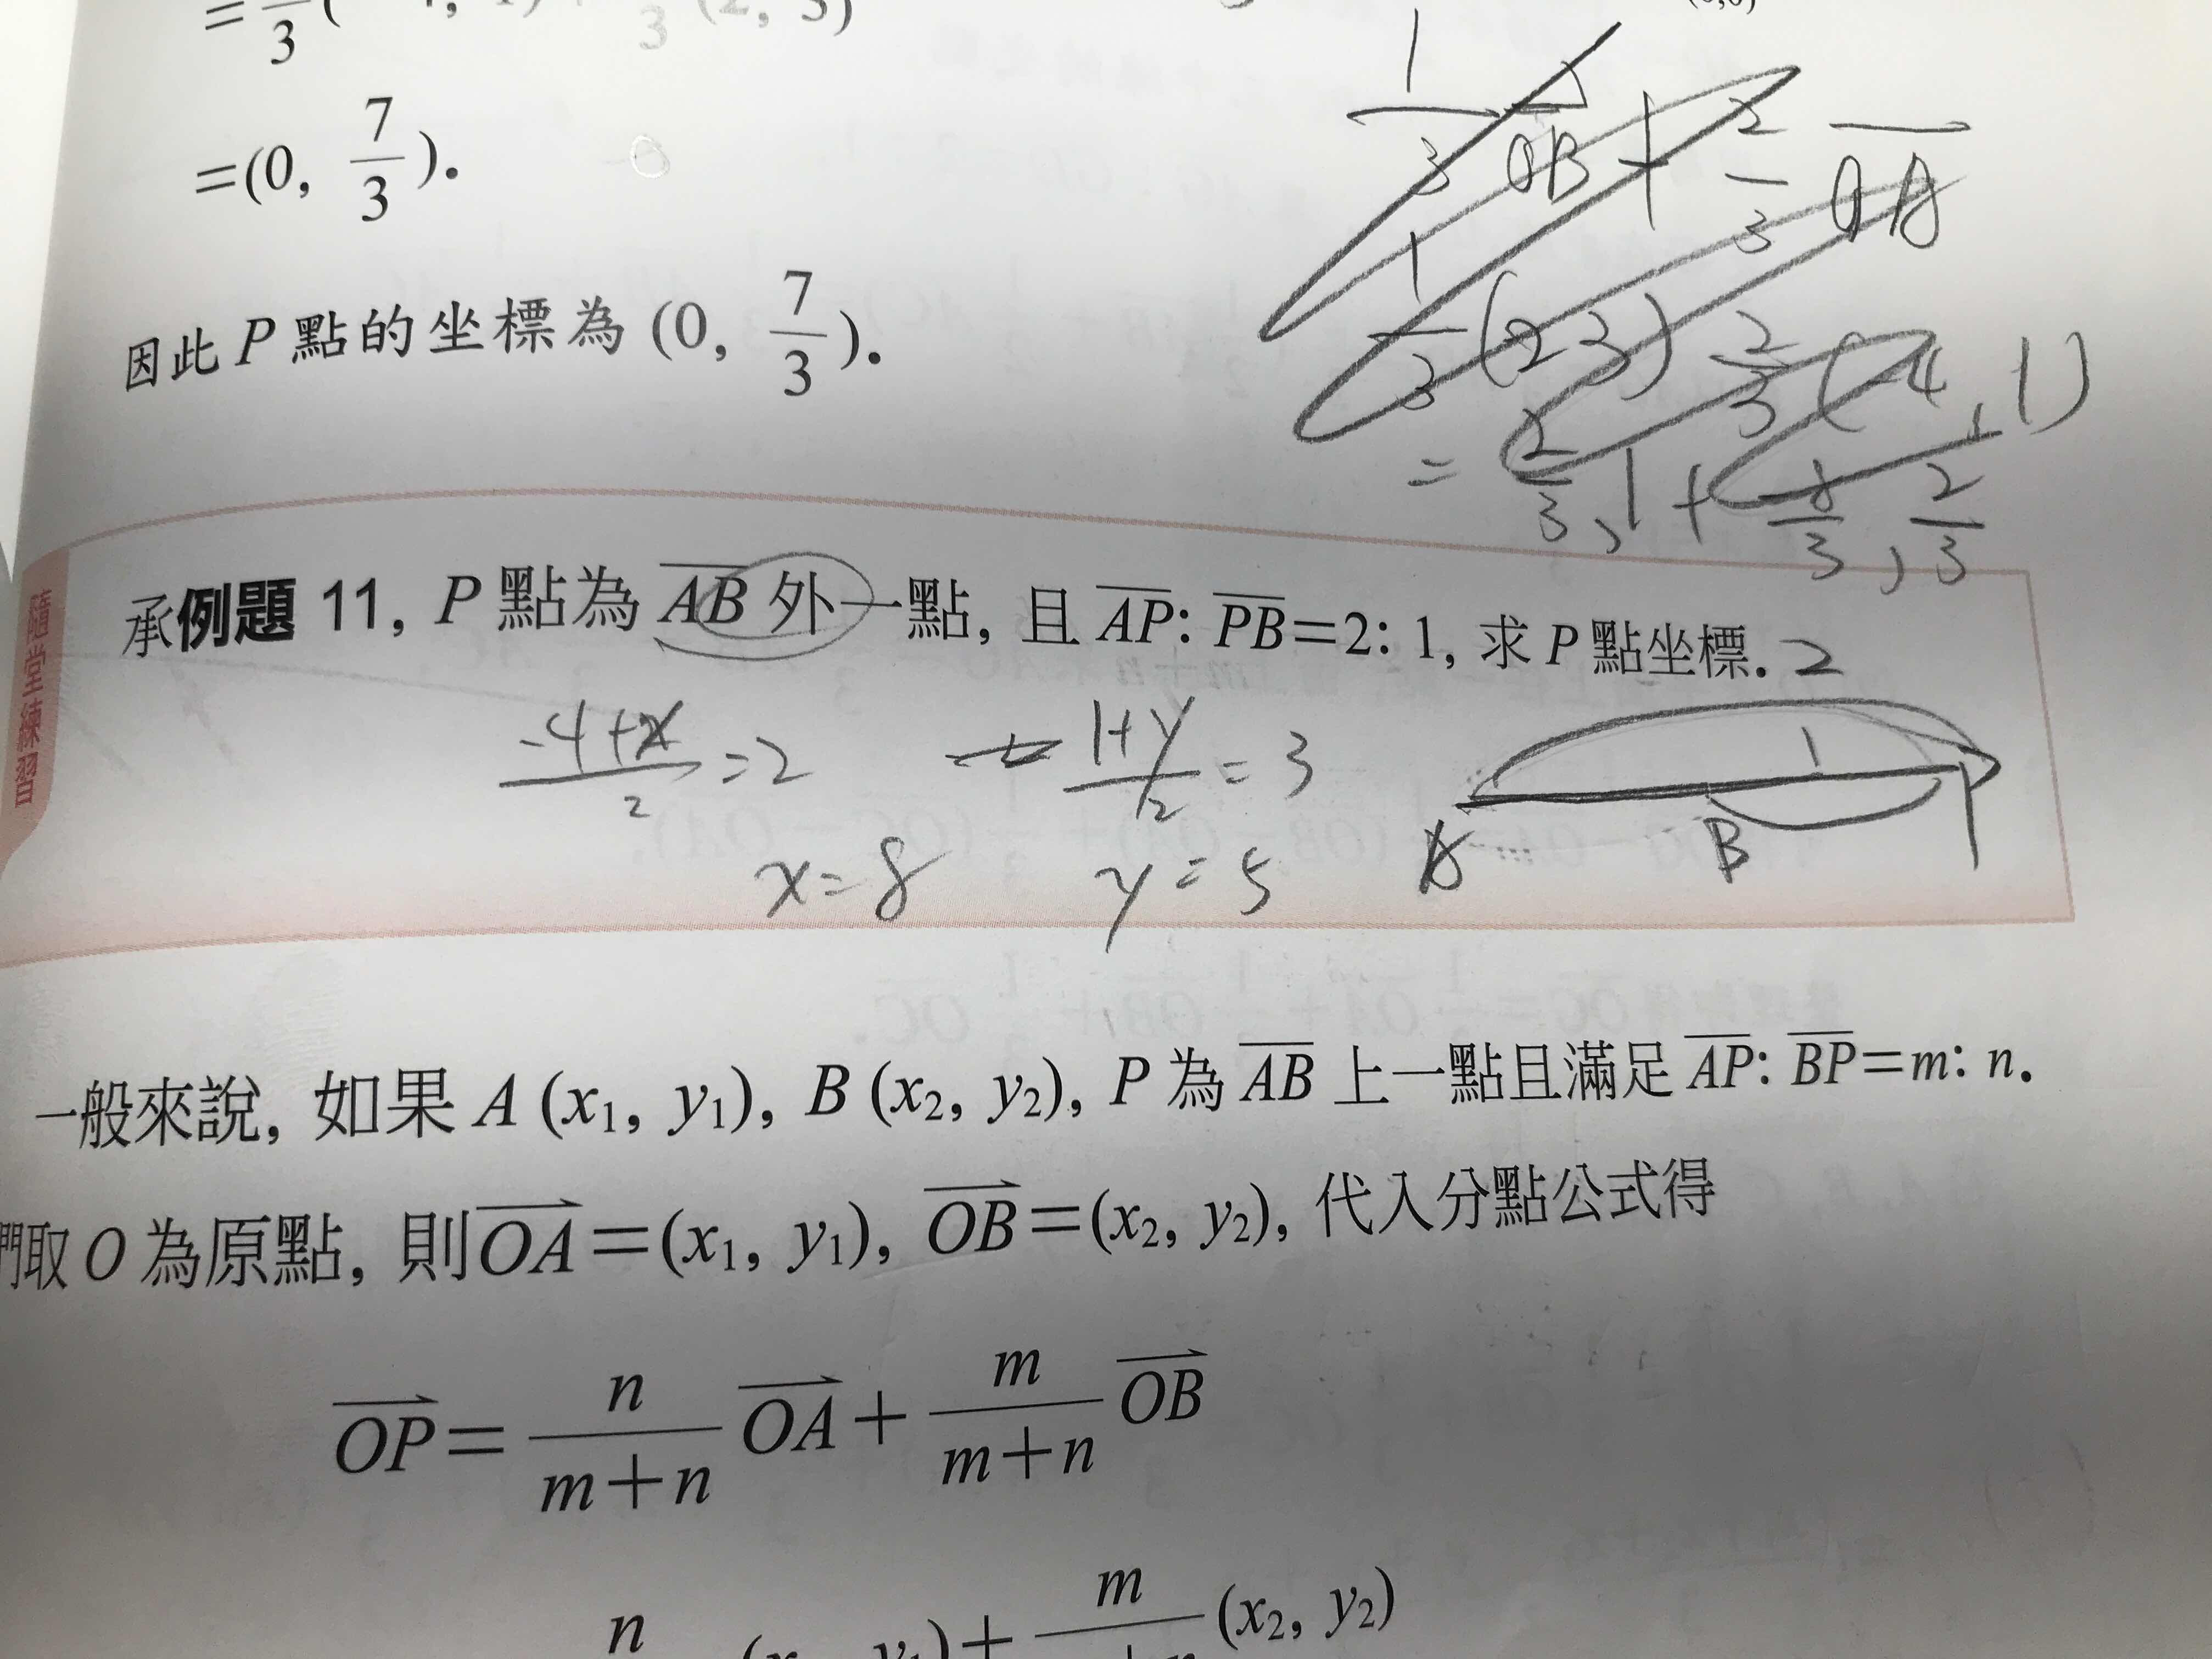 = 1/3 (-4, 1) + 2/3 (2, 3)
=(0, 7/3).
因此 P 點的坐標為 (0, 7/3).
1/3 OB + 2/3 OA
1/3 (2 3) 2/3 (-4, 1)
= 2/3, 1 + -8/3, 2/3
隨堂練習
承例題 11, P 點為 AB 外一點, 且 AP: PB=2: 1, 求 P 點坐標.
2
-4+x/2 =2 1+y/2 = 3
1
A B P
x=8 y=5
一般來說, 如果 A (x₁, y₁), B (x₂, y₂), P 為 AB 上一點且滿足 AP: BP=m: n.
們取 O 為原點, 則 OA=(x₁, y₁), OB=(x₂, y₂), 代入分點公式得
OP= n/m+n OA+ m/m+n OB
n m (x₂, y₂)